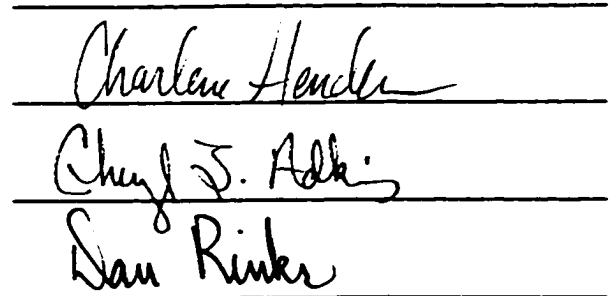 Charlene Hender
Cheryl J. Adkins
Dan Rinks